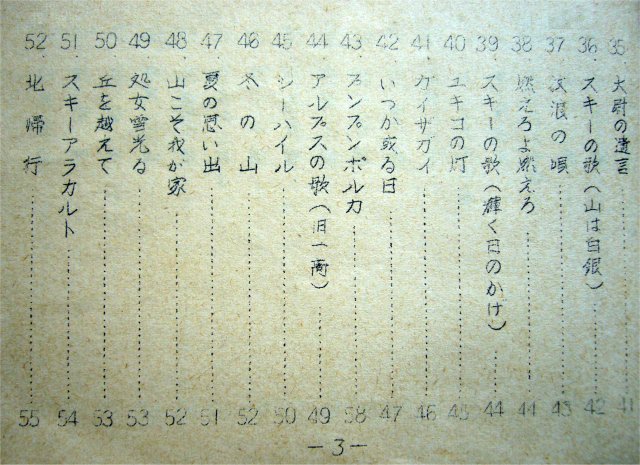 35 大尉の遺言 41
36 スキーの歌(山は白銀) 42
37 浪の唄 43
38 燃えろよ燃えろ 44
39 スキーの歌(輝く日のかけ) 44
40 ユキコの灯 45
41 ガイサガイ 46
42 いつか或る日 47
43 プンプンポルカ 58
44 アルプスの歌(旧一商) 49
45 シーハイル 50
46 冬の山 52
47 夏の思い出 51
48 山こそ我が家 52
49 処女雪光る 53
50 丘を越えて 53
51 スキーアラカルト 54
52 北帰行 55
-3-